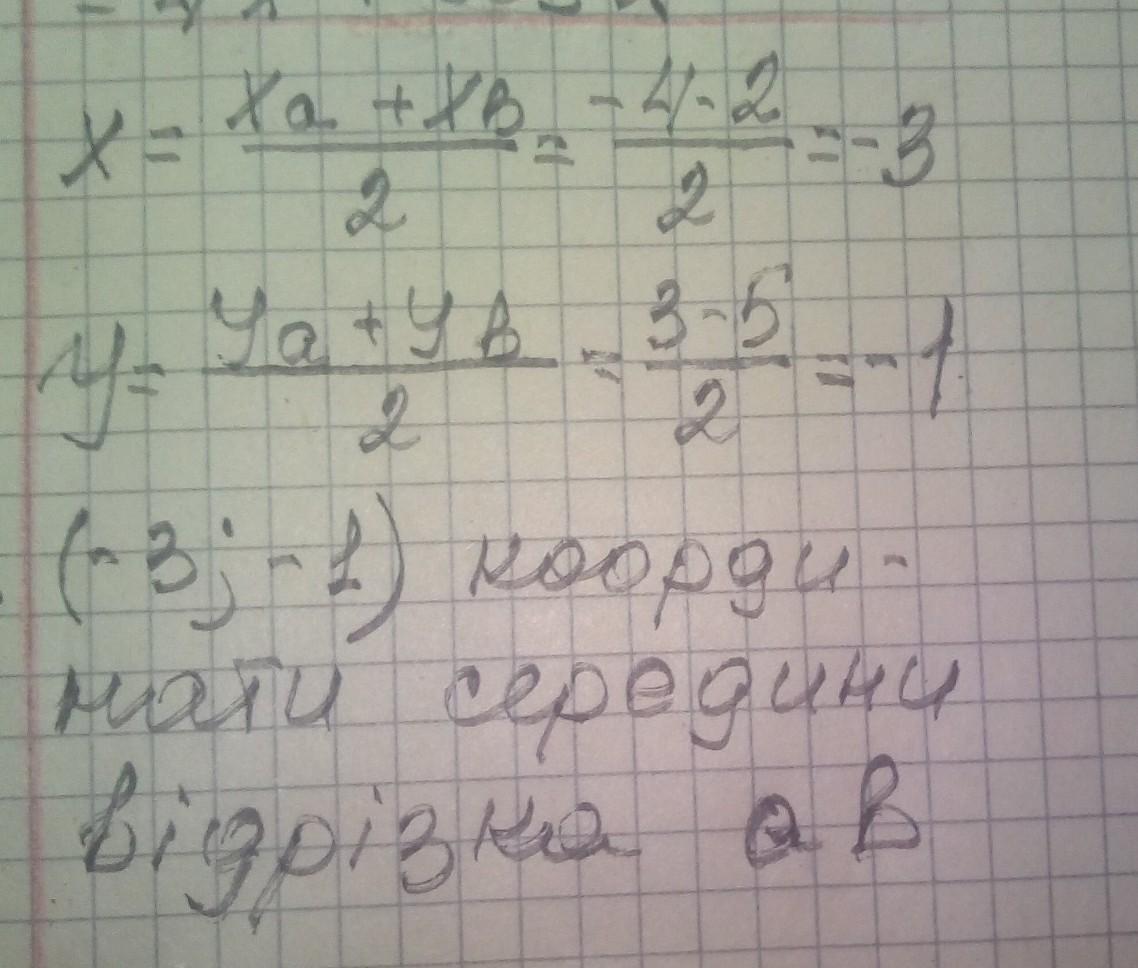 x = (xa + xв)/2 = (-4-2)/2 = -3
y = (ya + yв)/2 = (3-5)/2 = -1
(-3; -1) коорди-
нати середини
відрізка aB